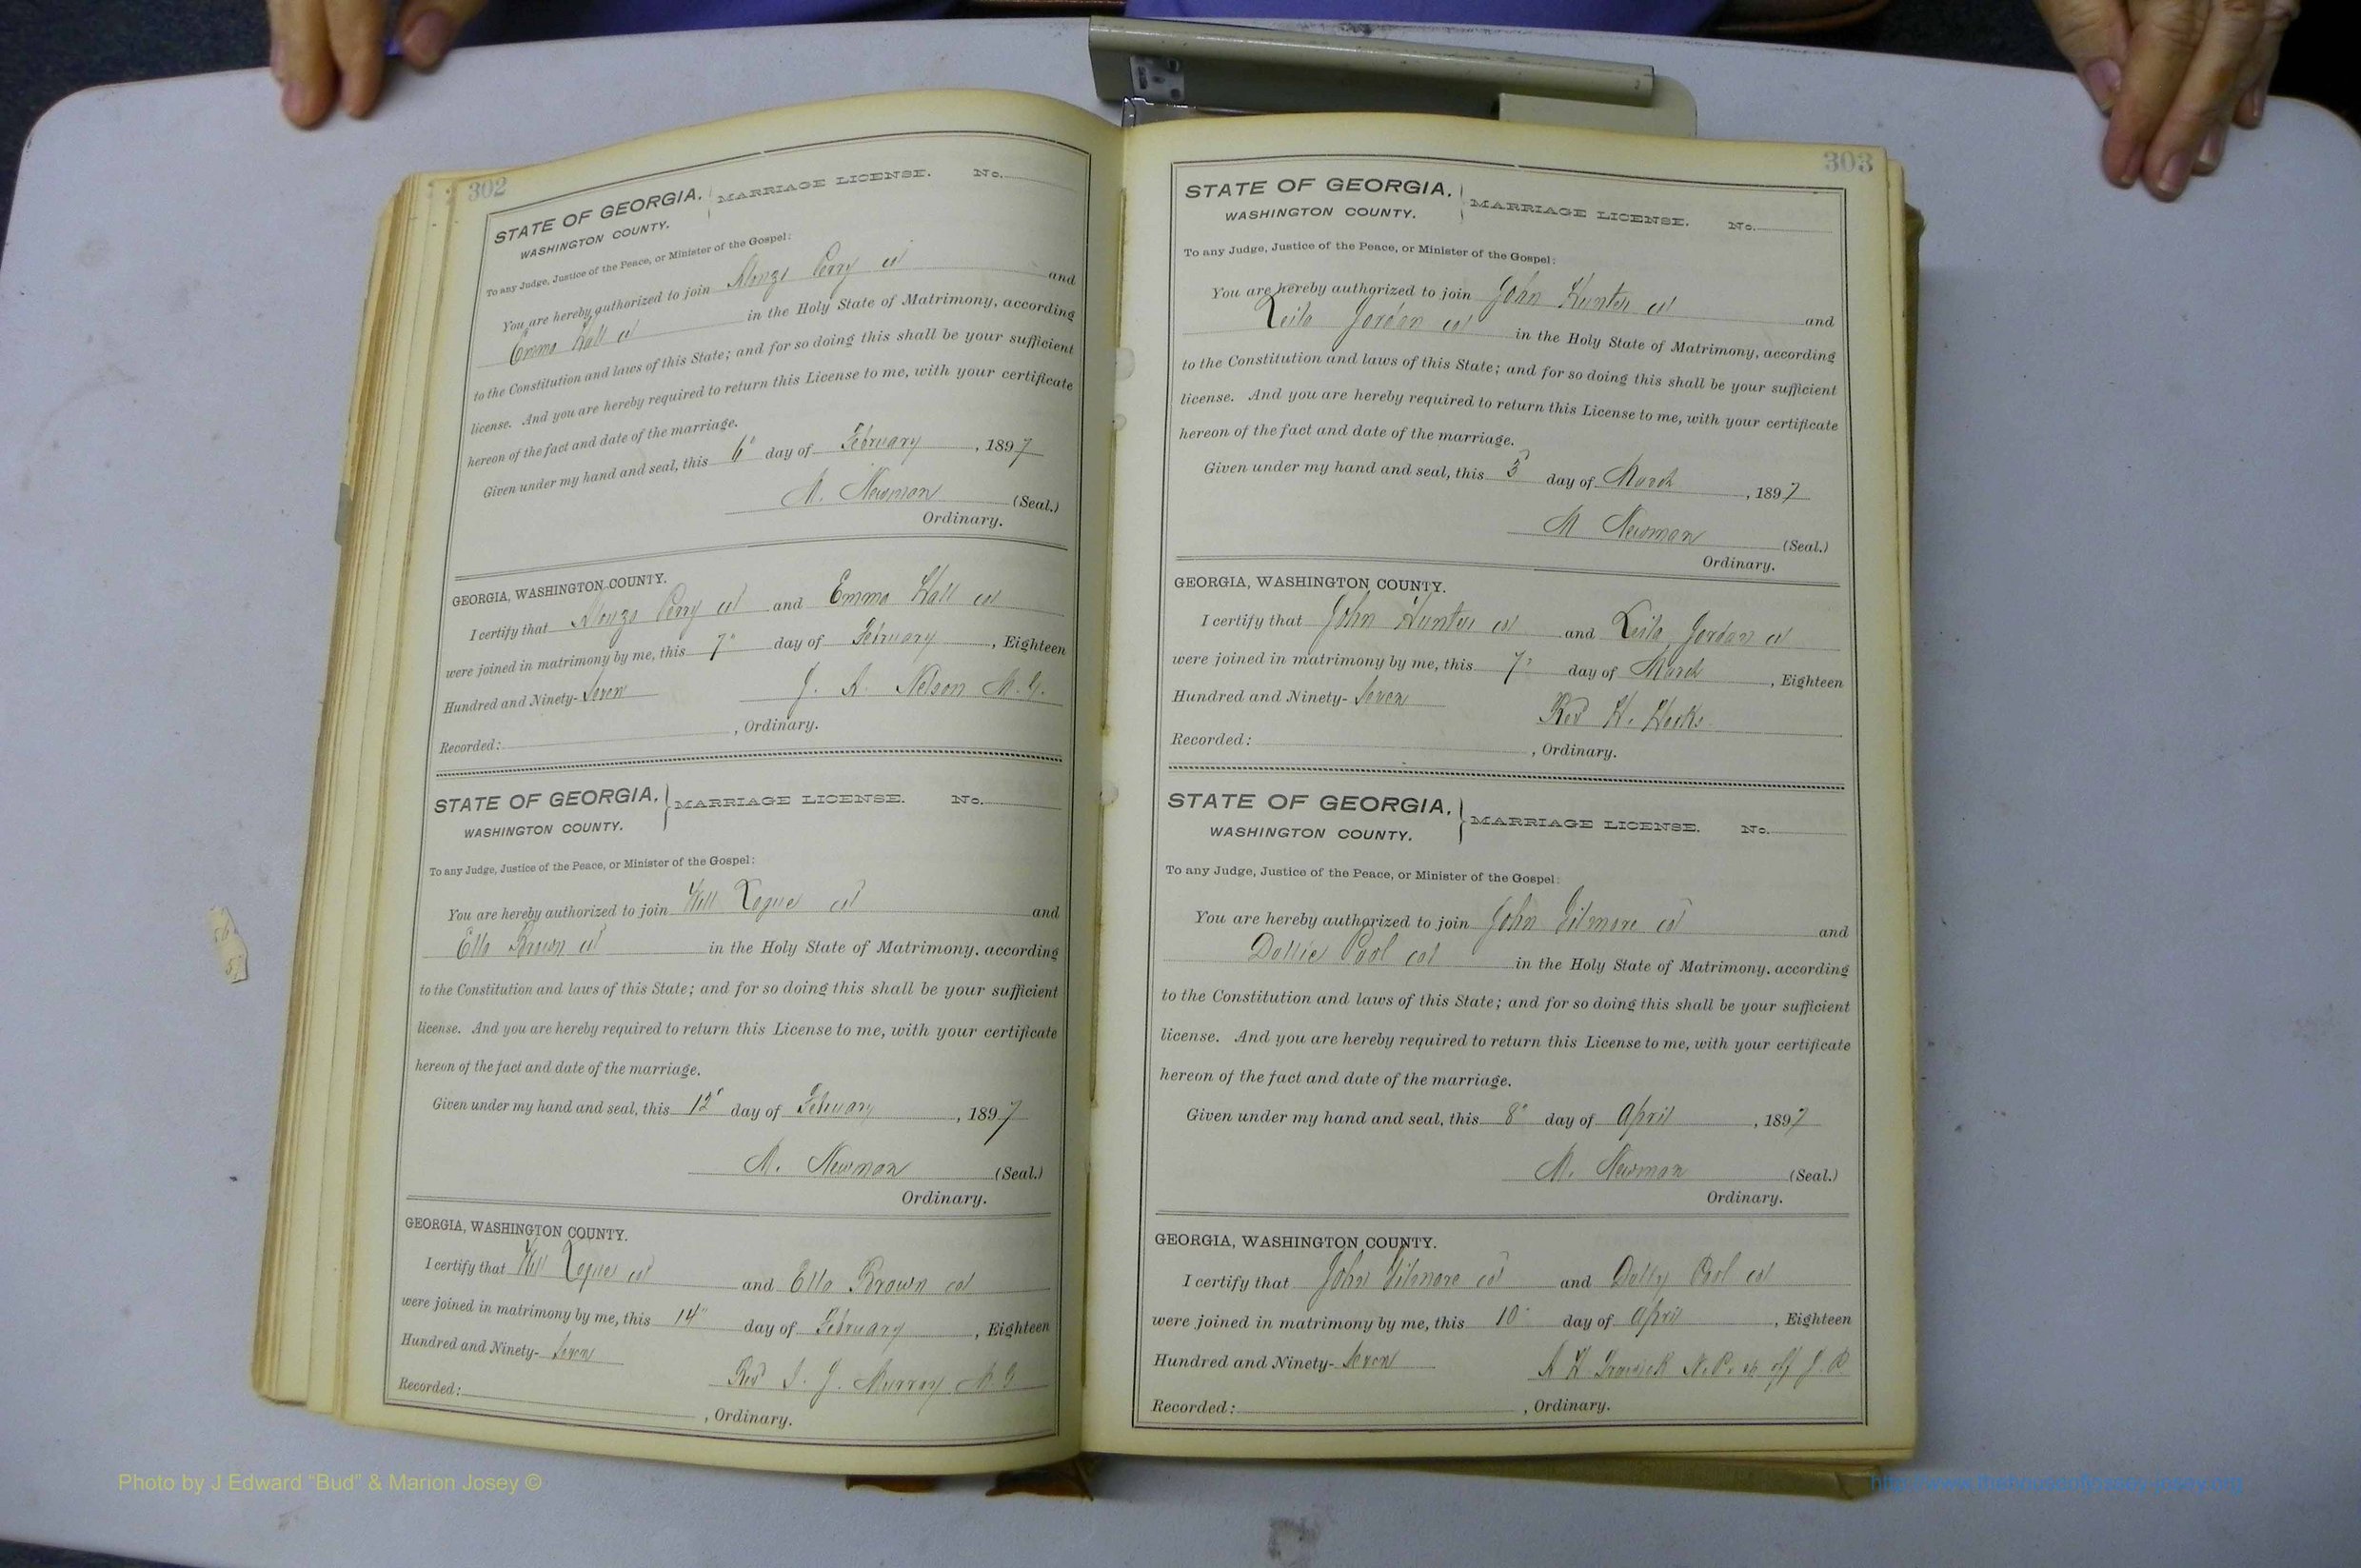 302
STATE OF GEORGIA, MARRIAGE LICENSE. No.
WASHINGTON COUNTY.
To any Judge, Justice of the Peace, or Minister of the Gospel:
You are hereby authorized to join Alonzo Perry col and
Emma Hall col in the Holy State of Matrimony, according
to the Constitution and laws of this State; and for so doing this shall be your sufficient
license. And you are hereby required to return this License to me, with your certificate
hereon of the fact and date of the marriage.
Given under my hand and seal, this 6" day of February, 1897
M. Newman (Seal.)
Ordinary.
GEORGIA, WASHINGTON COUNTY.
I certify that Alonzo Perry col and Emma Hall col
were joined in matrimony by me, this 7" day of February, Eighteen
Hundred and Ninety-Seven J. A. Nelson M. G.
Recorded: , Ordinary.
STATE OF GEORGIA, MARRIAGE LICENSE. No.
WASHINGTON COUNTY.
To any Judge, Justice of the Peace, or Minister of the Gospel:
You are hereby authorized to join Will Logue col and
Ella Brown col in the Holy State of Matrimony, according
to the Constitution and laws of this State; and for so doing this shall be your sufficient
license. And you are hereby required to return this License to me, with your certificate
hereon of the fact and date of the marriage.
Given under my hand and seal, this 12" day of February, 1897
M. Newman (Seal.)
Ordinary.
GEORGIA, WASHINGTON COUNTY.
I certify that Will Logue col and Ella Brown col
were joined in matrimony by me, this 14" day of February, Eighteen
Hundred and Ninety-Seven Rev J. Murray M G
Recorded: , Ordinary.
303
STATE OF GEORGIA, MARRIAGE LICENSE. No.
WASHINGTON COUNTY.
To any Judge, Justice of the Peace, or Minister of the Gospel:
You are hereby authorized to join John Hunter col and
Leila Jordan col in the Holy State of Matrimony, according
to the Constitution and laws of this State; and for so doing this shall be your sufficient
license. And you are hereby required to return this License to me, with your certificate
hereon of the fact and date of the marriage.
Given under my hand and seal, this 3" day of March, 1897
M Newman (Seal.)
Ordinary.
GEORGIA, WASHINGTON COUNTY.
I certify that John Hunter col and Leila Jordan col
were joined in matrimony by me, this 7" day of March, Eighteen
Hundred and Ninety-Seven Rev H.
Recorded: , Ordinary.
STATE OF GEORGIA, MARRIAGE LICENSE. No.
WASHINGTON COUNTY.
To any Judge, Justice of the Peace, or Minister of the Gospel:
You are hereby authorized to join John Gilmore col and
Dollie Pool col in the Holy State of Matrimony, according
to the Constitution and laws of this State; and for so doing this shall be your sufficient
license. And you are hereby required to return this License to me, with your certificate
hereon of the fact and date of the marriage.
Given under my hand and seal, this 8" day of April, 1897
M. Newman (Seal.)
Ordinary.
GEORGIA, WASHINGTON COUNTY.
I certify that John Gilmore col and Dolly Pool col
were joined in matrimony by me, this 10" day of April, Eighteen
Hundred and Ninety-Seven N. P. ex off J. P.
Recorded: , Ordinary.
Photo by J Edward "Bud" & Marion Josey ©